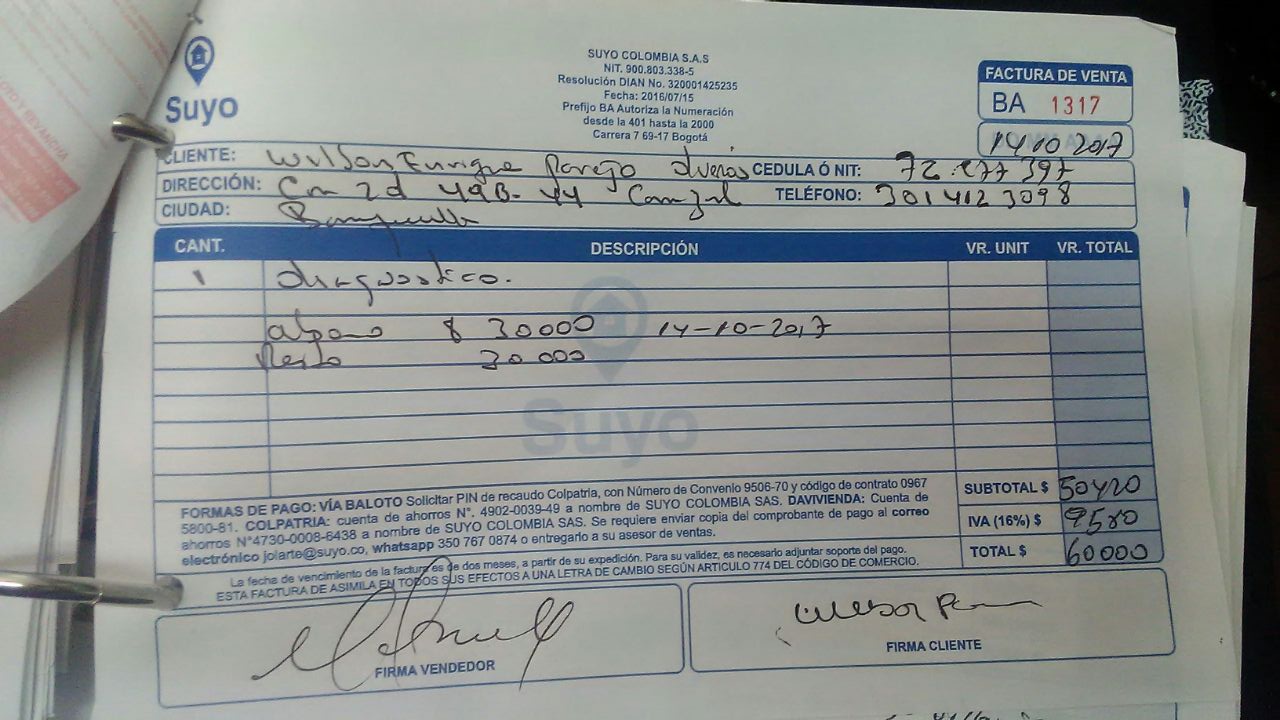 Suyo
SUYO COLOMBIA S.A.S
NIT. 900.803.338-5
Resolución DIAN No. 320001425235
Fecha: 2016/07/15
Prefijo BA Autoriza la Numeración
desde la 401 hasta la 2000
Carrera 7 69-17 Bogotá
FACTURA DE VENTA
BA 1317
14 10 2017
CLIENTE: Wilson Enrique Parejo CEDULA Ó NIT: 72.277397
DIRECCIÓN: Cra 2d 49B-44 TELÉFONO: 301 412 3098
CIUDAD: Barranquilla
CANT. DESCRIPCIÓN VR. UNIT VR. TOTAL
1 diagnostico.
abono $ 30000 14-10-2017
Resto 30 000
Suyo
FORMAS DE PAGO: VÍA BALOTO Solicitar PIN de recaudo Colpatria, con Número de Convenio 9506-70 y código de contrato 0967
5800-81. COLPATRIA: cuenta de ahorros N°. 4902-0039-49 a nombre de SUYO COLOMBIA SAS. DAVIVIENDA: Cuenta de
ahorros N°4730-0008-6438 a nombre de SUYO COLOMBIA SAS. Se requiere enviar copia del comprobante de pago al correo
electrónico jolarte@suyo.co, whatsapp 350 767 0874 o entregarlo a su asesor de ventas.
La fecha de vencimiento de la factura es de dos meses, a partir de su expedición. Para su validez, es necesario adjuntar soporte del pago.
ESTA FACTURA DE ASIMILA EN TODOS SUS EFECTOS A UNA LETRA DE CAMBIO SEGÚN ARTICULO 774 DEL CÓDIGO DE COMERCIO.
SUBTOTAL $ 50420
IVA (16%) $ 9580
TOTAL $ 60000
FIRMA VENDEDOR
FIRMA CLIENTE